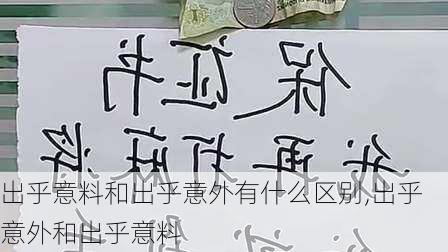 保证书
我再打麻将
出乎意料和出乎意外有什么区别,出乎
意外和出乎意料